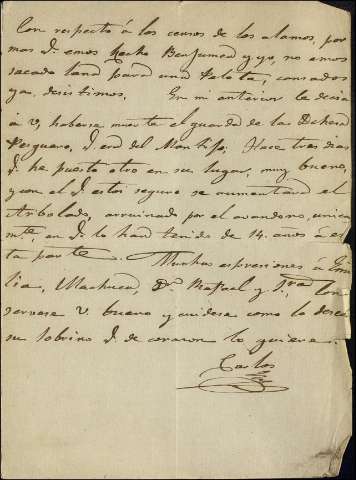 Con respecto á los censos de los alamos, por
mas q.e emos hecho Benjumea y yo, no emos
sacado tanto para una Pelota, cansados
ya, desistimos. En mi anterior le decia
á V, haberse muerto el guarda de la
Verguara, q. era del Montijo. Hace tres dias
q. he puesto otro en su lugar, muy bueno,
y con el q. estoy seguro se aumentará el
Arbolado, arruinado por el avandono, unica
m.te, en q. lo han tenido de 14 años á es
ta parte. Muchas espresiones á Emi
lia, Machuca, D.n Rafael y S.ra Con
servese V. bueno y cuidese como lo desea
su sobrino q. de corazon lo quiere.
Carlos